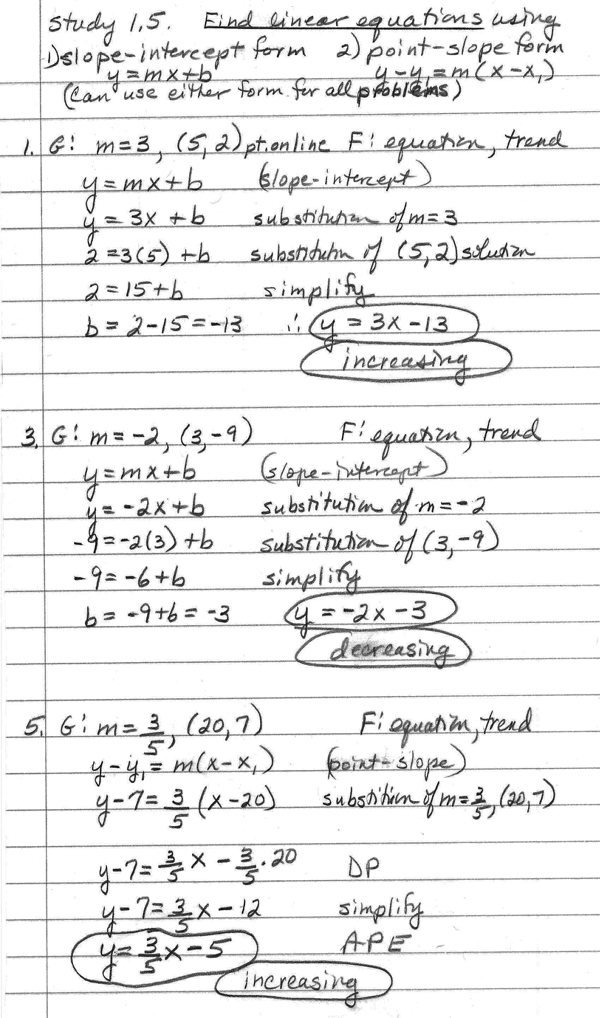 Study 1.5. Find linear equations using
1) slope-intercept form 2) point-slope form
y = mx + b y - y₁ = m(x - x₁)
(Can use either form for all problems)
1. G: m = 3, (5, 2) pt. on line F: equation, trend
y = mx + b (slope-intercept)
y = 3x + b substitution of m = 3
2 = 3(5) + b substitutn of (5, 2) solution
2 = 15 + b simplify
b = 2 - 15 = -13 ∴ y = 3x - 13
increasing
3. G: m = -2, (3, -9) F: equation, trend
y = mx + b (slope-intercept)
y = -2x + b substitution of m = -2
-9 = -2(3) + b substitution of (3, -9)
-9 = -6 + b simplify
b = -9 + 6 = -3 y = -2x - 3
decreasing
5. G: m = 3/5, (20, 7) F: equation, trend
y - y₁ = m(x - x₁) (point-slope)
y - 7 = 3/5 (x - 20) substitiion of m = 3/5, (20, 7)
y - 7 = 3/5 x - 3/5 · 20 DP
y - 7 = 3/5 x - 12 simplify
y = 3/5 x - 5 APE
increasing